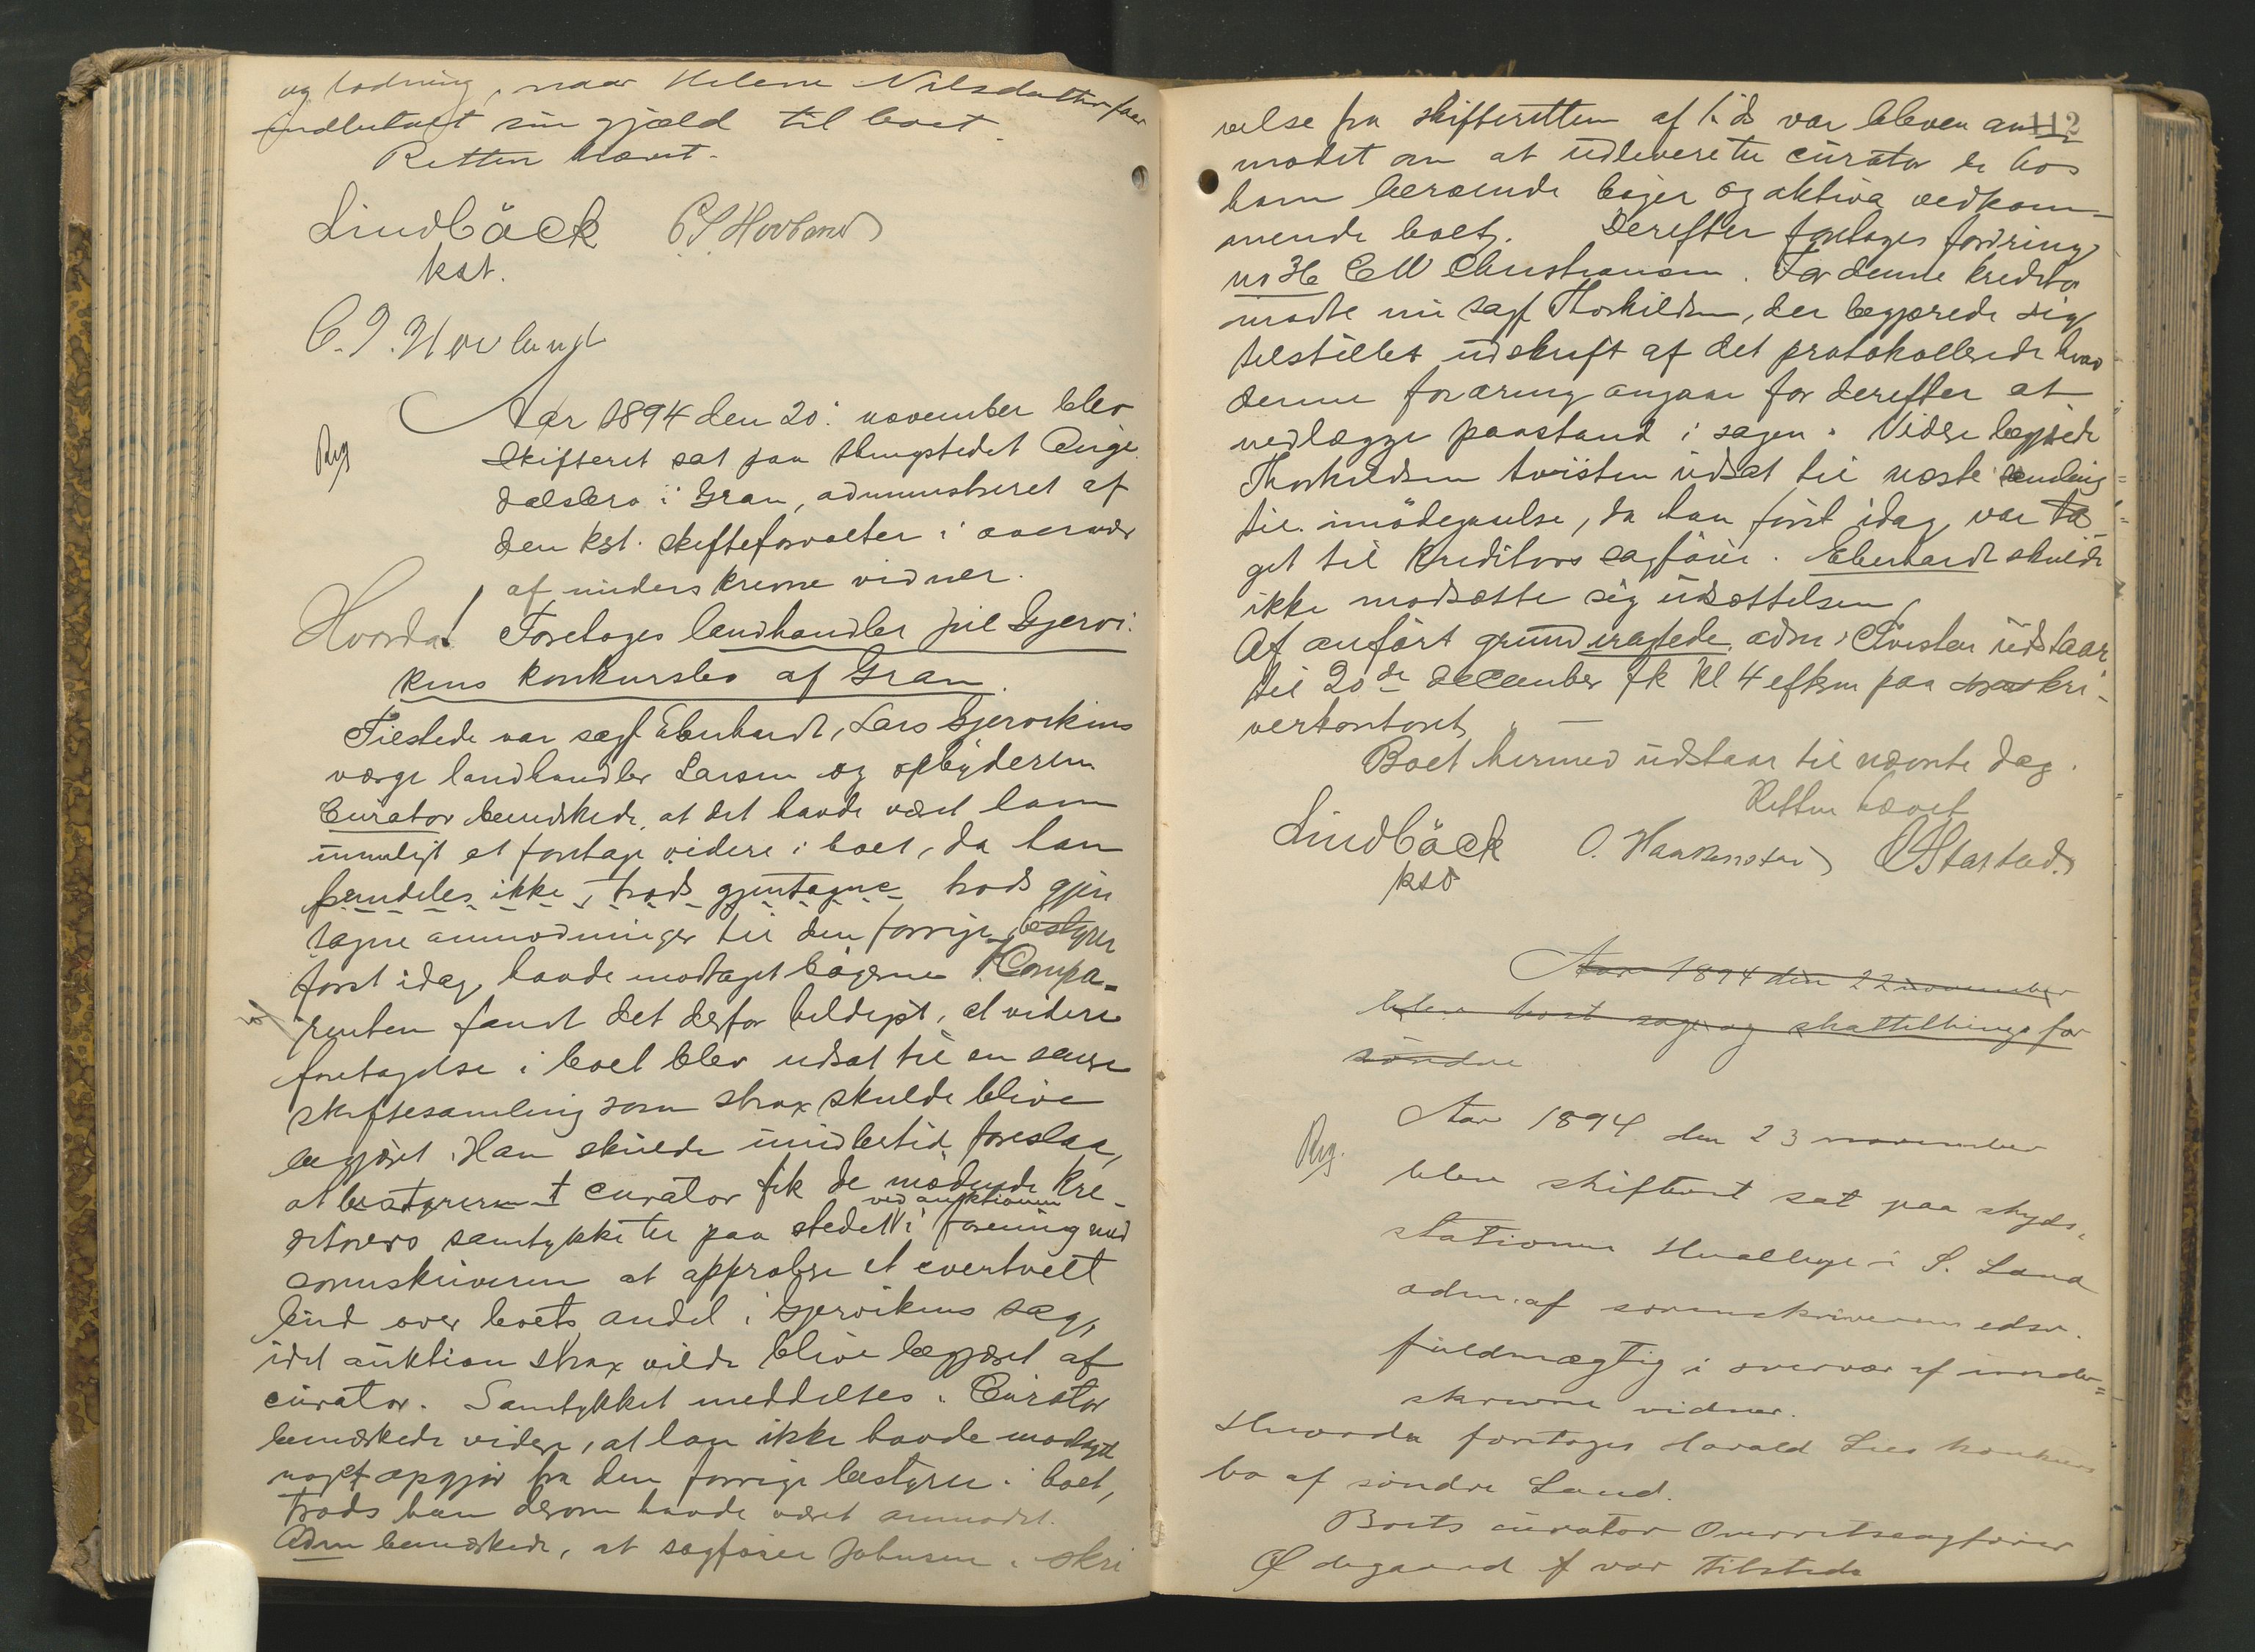 og lodning, naar Helene Nilsdatter faar
indbetalt sin gjæld til boet.
Retten hævet.
Lindböck
kst.
Aar 1894 den 20: november blev
Reg
skifteret sat paa thingstedet Enge
dalsbro i Gran, administreret af
den kst. skifteforvalter i overvær
af underskrevne vidner.
Hvorda! Foretages landhandler Juel Gjervi
kens konkursbo af Gran.
Tilstede var sagf Eberhardt, Lars Gjervikens
værge landhandler Larsen og opbyderen
Curator bemærkede, at det havde været ham
umuligt at foretage videre i boet, da han
fremdeles ikke, trods gjentagne trods gjen
tagne anmodninger til den forrige bestyrer
først idag havde modtaget bøgerne. Compa-
renten fandt det derfor heldigst, at videre
foretagelse i boet blev udsat til en senere
skiftesamling som strax skulde blive
begjæret. Han skulde imidlertid foreslaa,
at bestyreren t curator fik de mødende kre-
ved auktionen
ditorers samtykke til paa stedet i forening med
sorenskriveren at approbere et eventuelt
bud over boets andel i Gjervikens sag,
idet auktion strax vilde blive begjæret af
curator. Samtykket meddeltes. Curator
bemærkede videre, at han ikke havde modtaget
noget opgjør fra den forrige bestyrer i boet,
trods han derom havde været anmodet.
Adm bemærkede, at sagfører Johnsen i skri
112
velse fra skifteretten af 1. ds var bleven an
modet om at udlevere til curator de hos
ham beroende bøger og aktiva vedkom-
mende boet. Derefter foretages fordring
nr 36 C M Christiansen. For denne kreditor
mødte nu sagf Thorkildsen, der begjærede sig
tilstillet udskrift af det protokollerede hvad
denne fordring angaar for derefter at
nedlægge paastand i sagen. Videre begjærede
Thorkildsen tvisten udsat til næste samling
til imødegaaelse, da han først idag var ta
get til kreditors sagfører. Eberhardt skulde
ikke modsætte sig udsættelsen.
Af anført grund eragtede adm: Tvisten udstaar
til 20de december fk kl 4 eftm paa skri-
verkontoret. —
Boet hermed udstaar til nævnte dag.
Retten hævet
Lindböck
kst
Aar 1894 den 22 november
blev høst sage og skattething for
søndre
Aar 1894 den 23 november
Reg.
blev skifteret sat paa skyds-
stationen Hvalbye i S. Land
adm. af sorenskriverens edsv.
fuldmægtig i overvær af under=
skrevne vidner.
Hvorda foretages Harald Lies konkurs
bo af søndre Land.
Boets curator Overretssagfører
Ødegaard f var tilstede